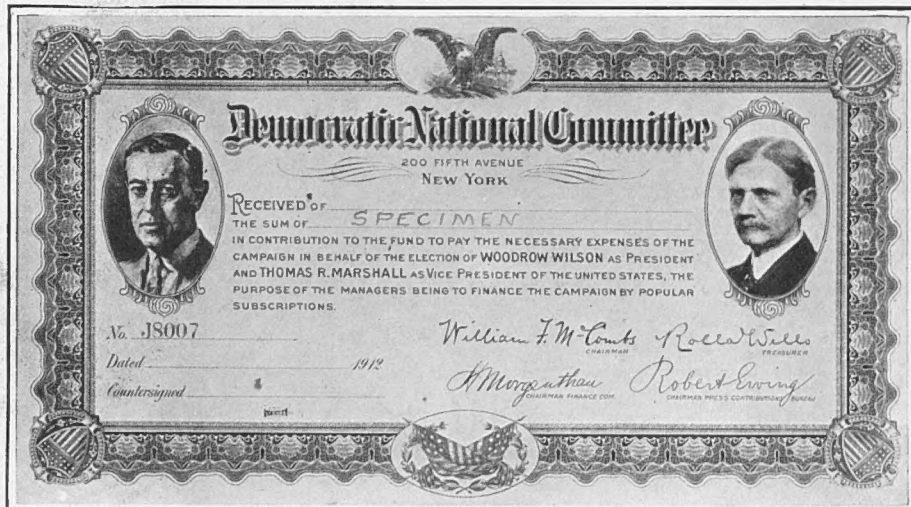 Democratic National Committee
200 FIFTH AVENUE
NEW YORK
RECEIVED OF
THE SUM OF SPECIMEN
IN CONTRIBUTION TO THE FUND TO PAY THE NECESSARY EXPENSES OF THE
CAMPAIGN IN BEHALF OF THE ELECTION OF WOODROW WILSON AS PRESIDENT
AND THOMAS R. MARSHALL AS VICE PRESIDENT OF THE UNITED STATES, THE
PURPOSE OF THE MANAGERS BEING TO FINANCE THE CAMPAIGN BY POPULAR
SUBSCRIPTIONS.
No. J8007
William F. McCombs Rolla Wells
CHAIRMAN TREASURER
Dated 1912
H Morgenthau Robert Ewing
Countersigned
CHAIRMAN FINANCE COM. CHAIRMAN PRESS CONTRIBUTIONS BUREAU